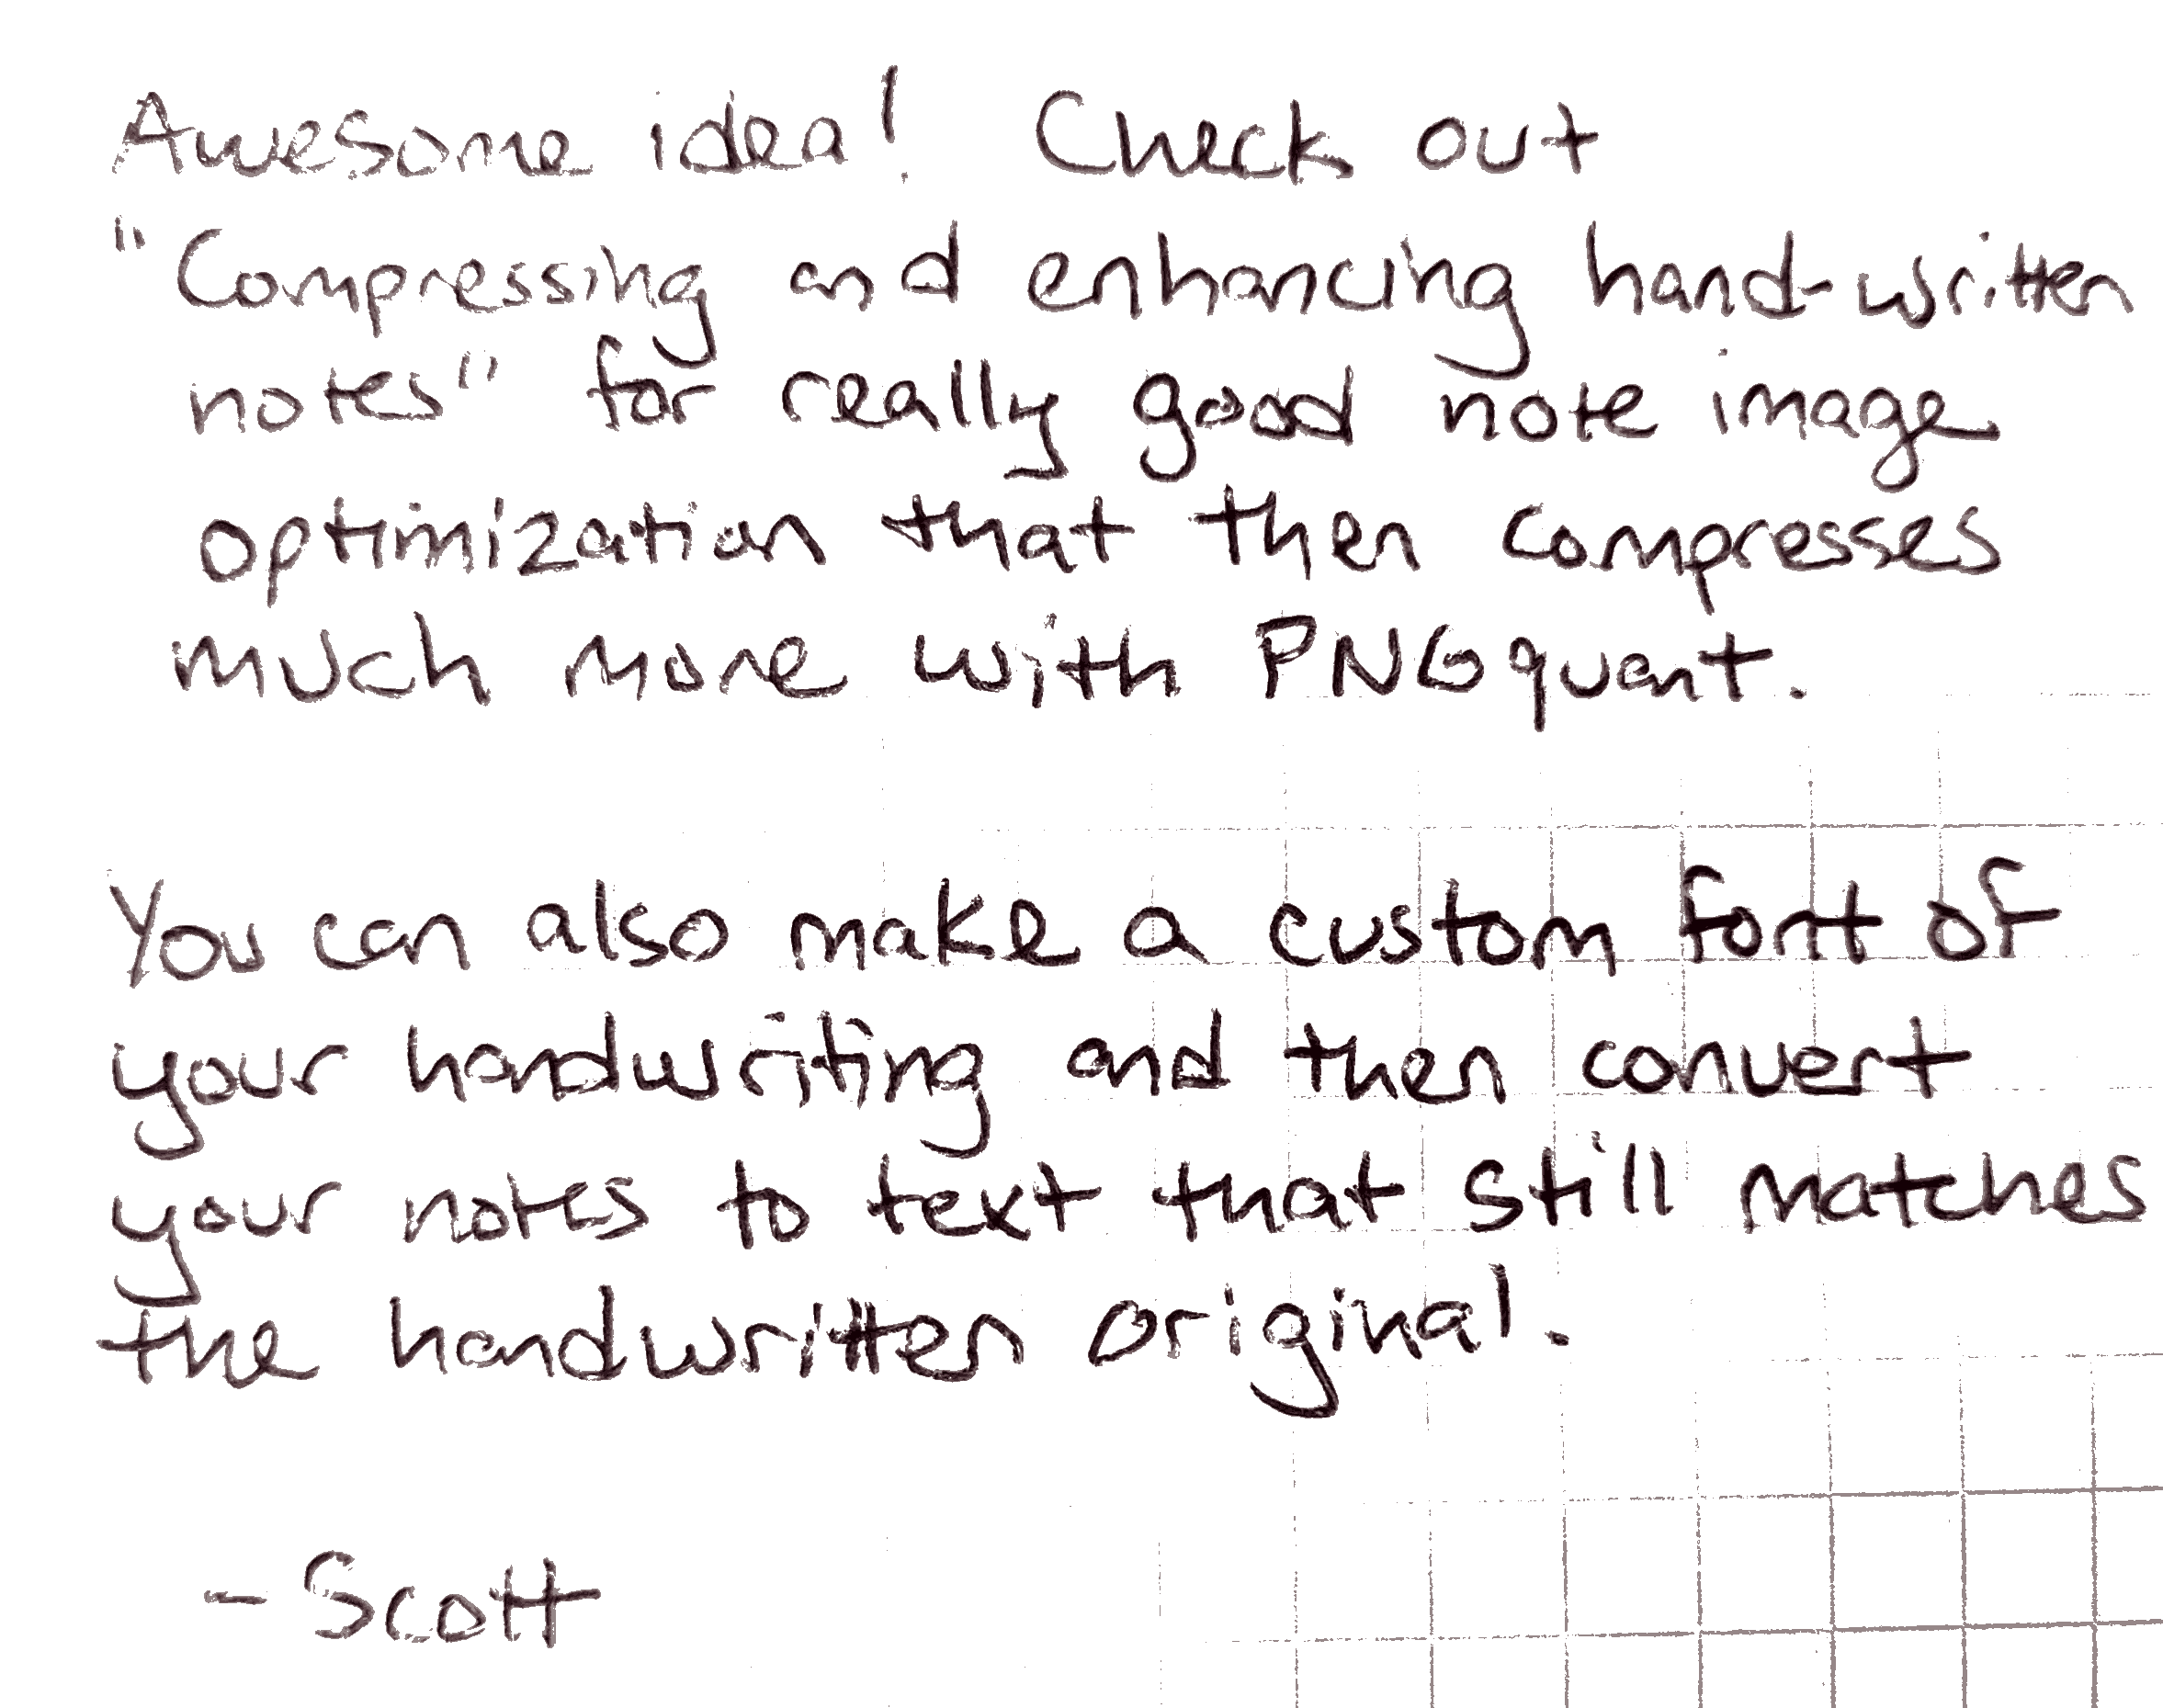 Awesome idea! Check out
"Compressing and enhancing hand-written
notes" for really good note image
optimization that then compresses
much more with PNGquant.
You can also make a custom font of
your handwriting and then convert
your notes to text that still matches
the handwritten original.
-Scott